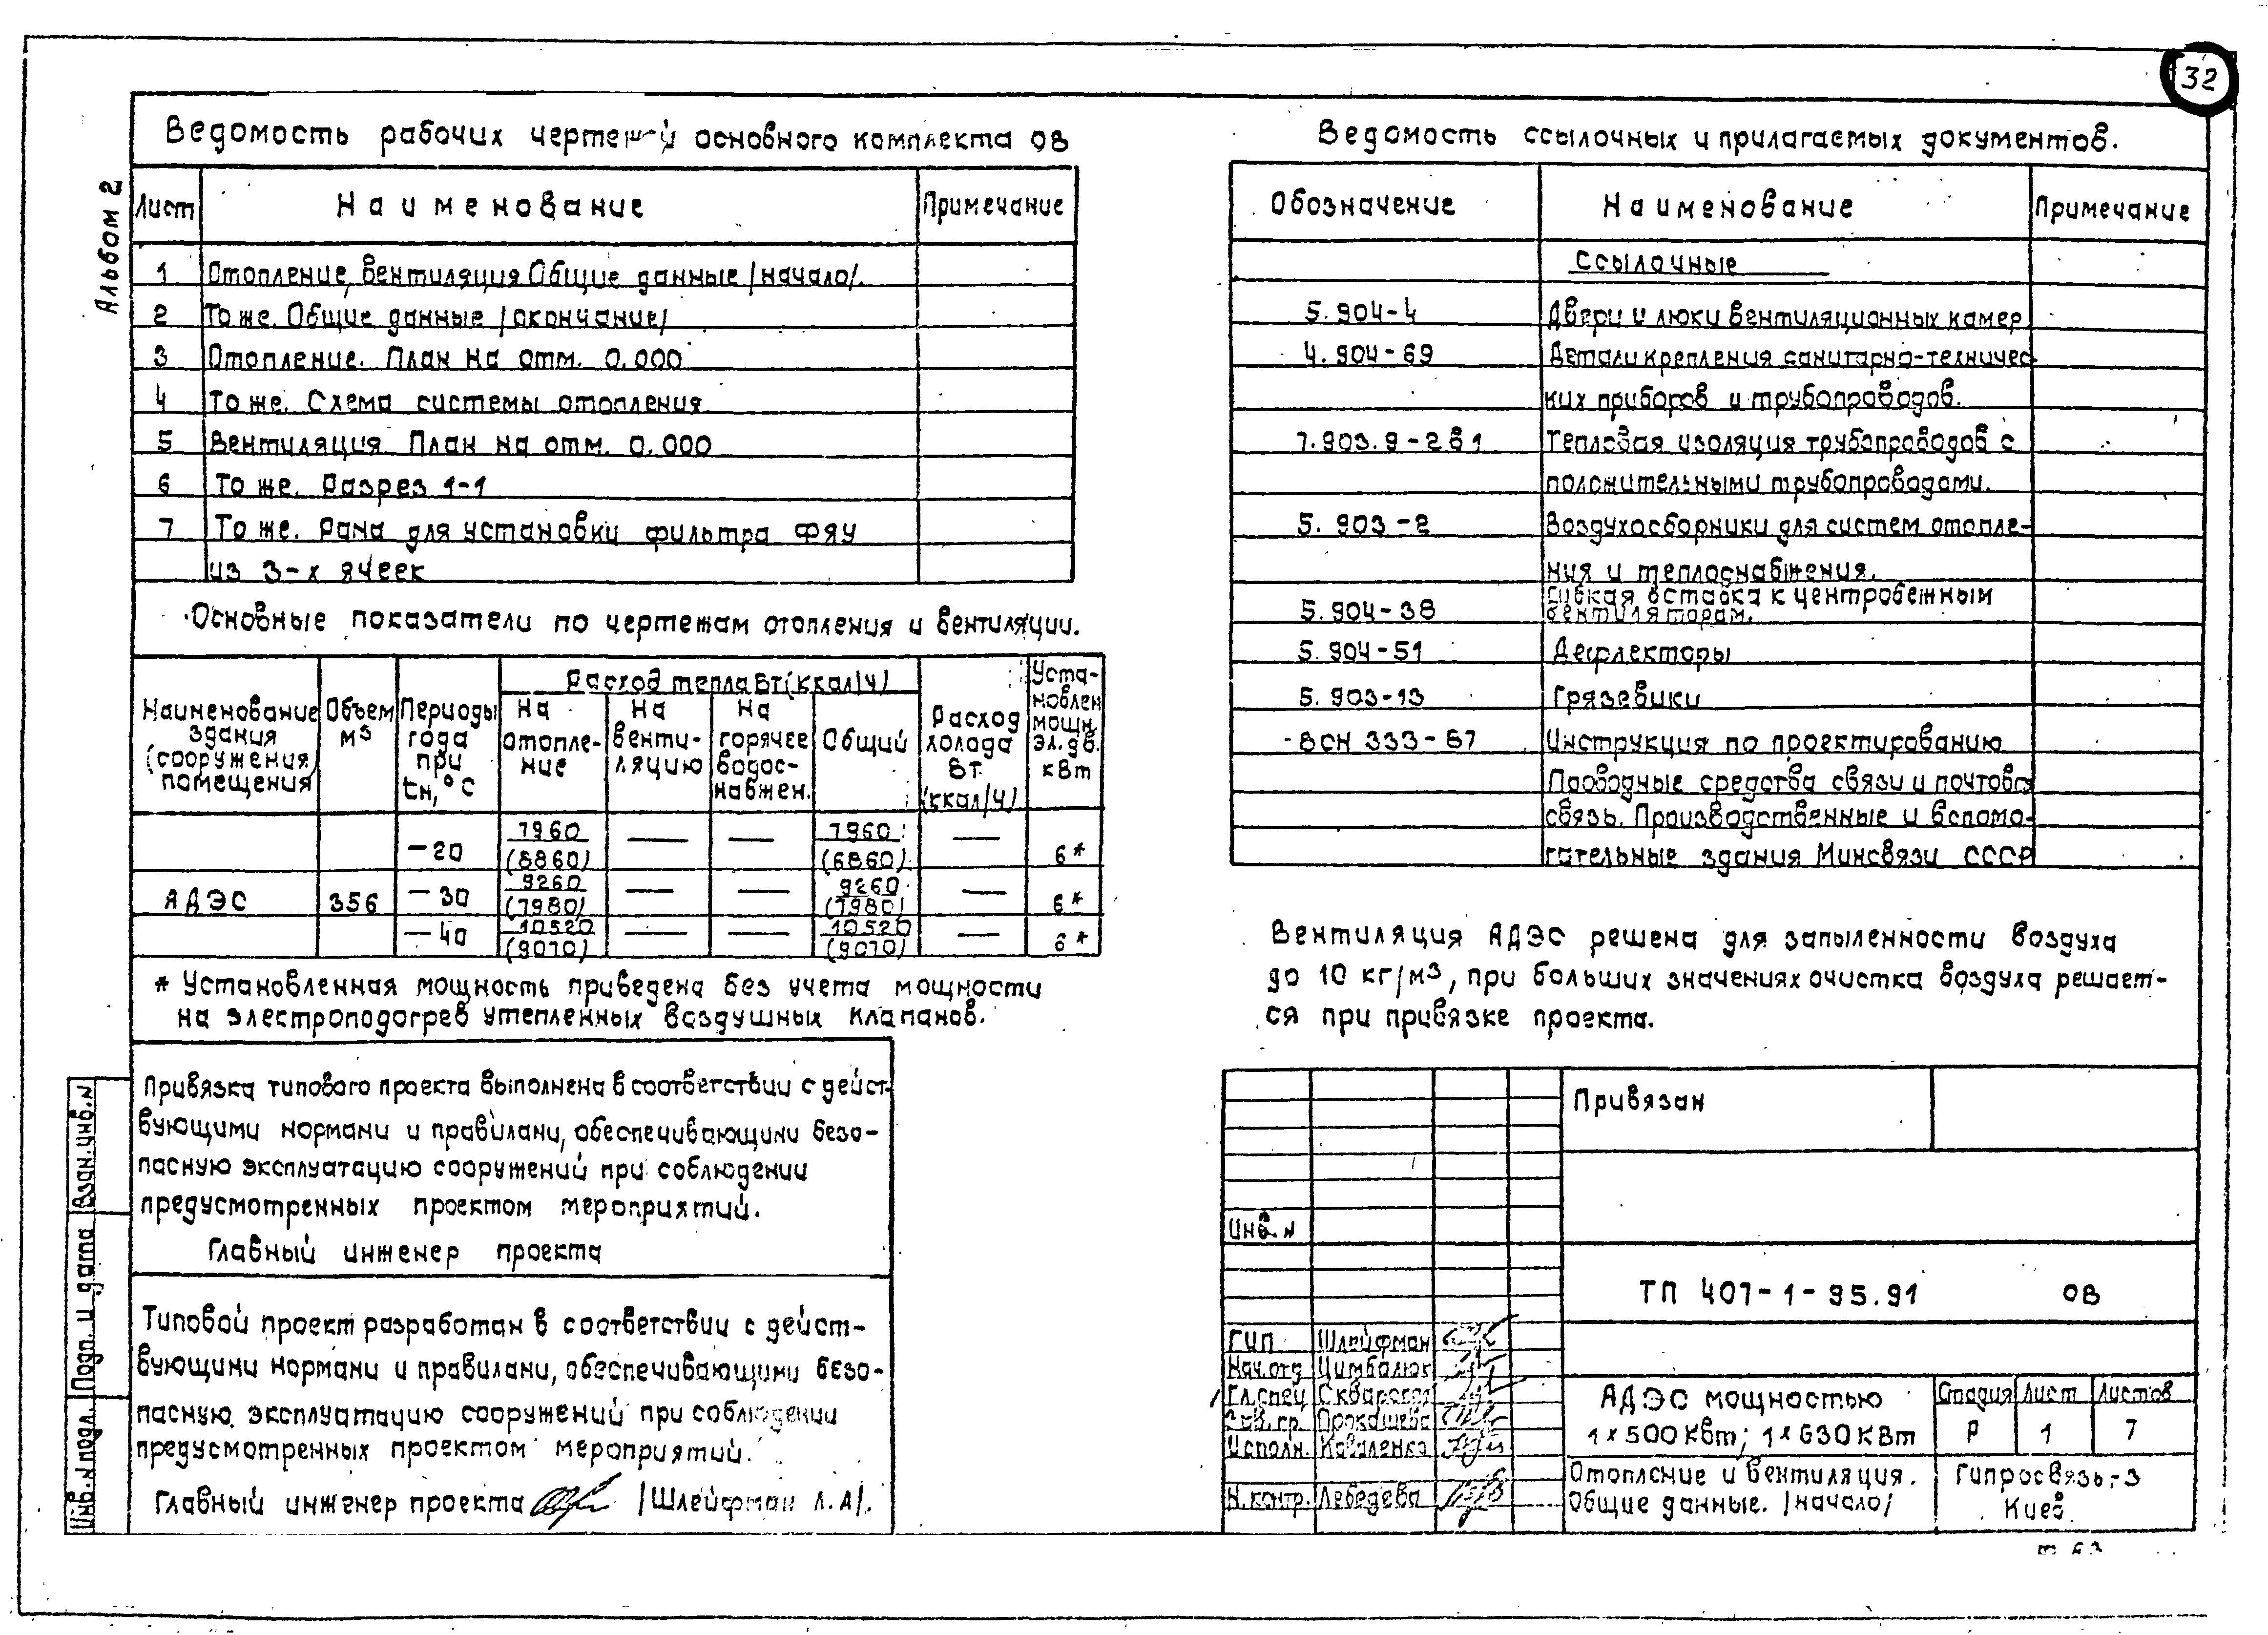 32
Альбом 2
Ведомость рабочих чертежей основного комплекта ОВ
Лист Наименование Примечание
1 Отопление, вентиляция Общие данные /начало/.
2 То же. Общие данные /окончание/
3 Отопление. План на отм. 0.000
4 То же. Схема системы отопления
5 Вентиляция. План на отм. 0.000
6 То же. Разрез 1-1
7 То же. Рама для установки фильтра ФЯУ
из 3-х ячеек
Основные показатели по чертежам отопления и вентиляции.
Наименование здания (сооружения) помещения
Объем м3
Периоды года при tн, °С
Расход тепла Вт (ккал/ч)
На отопление
На вентиляцию
На горячее водоснабжен.
Общий
Расход холода Вт (ккал/ч)
Установлен мощн. эл. дв. кВт
-20 7960 (6860) — — 7960 (6860) — 6*
АДЭС 356 -30 9260 (7980) — — 9260 (7980) — 6*
-40 10520 (9070) — — 10520 (9070) — 6*
* Установленная мощность приведена без учета мощности
на электроподогрев утепленных воздушных клапанов.
Привязка типового проекта выполнена в соответствии с дейст-
вующими нормами и правилами, обеспечивающими безо-
пасную эксплуатацию сооружений при соблюдении
предусмотренных проектом мероприятий.
Главный инженер проекта
Типовой проект разработан в соответствии с дейст-
вующими нормами и правилами, обеспечивающими безо-
пасную эксплуатацию сооружений при соблюдении
предусмотренных проектом мероприятий.
Главный инженер проекта /Шлейфман Л.А/.
Взам. инв. N
Подп. и дата
Инв. N подл.
Ведомость ссылочных и прилагаемых документов.
Обозначение Наименование Примечание
Ссылочные
5.904-4 Двери и люки вентиляционных камер
4.904-69 Детали крепления санитарно-техничес-
ких приборов и трубопроводов.
7.903.9-2 в1 Тепловая изоляция трубопроводов с
положительными трубопроводами.
5.903-2 Воздухосборники для систем отопле-
ния и теплоснабжения.
5.904-38 Гибкая вставка к центробежным
вентиляторам.
5.904-51 Дефлекторы
5.903-13 Грязевики
ВСН 333-87 Инструкция по проектированию
Проводные средства связи и почтовая
связь. Производственные и вспомо-
гательные здания Минсвязи СССР
Вентиляция АДЭС решена для запыленности воздуха
до 10 кг/м3, при больших значениях очистка воздуха решает-
ся при привязке проекта.
Привязан
Инв. N
ТП 407-1-95.91 ОВ
ГИП Шлейфман
Нач. отд Цимбалюк
Гл. спец
Исполн. Коваленко
Н. контр. Лебедева
АДЭС мощностью
1x500 кВт; 1x630 кВт
Стадия Лист Листов
Р 1 7
Отопление и вентиляция.
Общие данные. /начало/
Гипросвязь-3
Киев